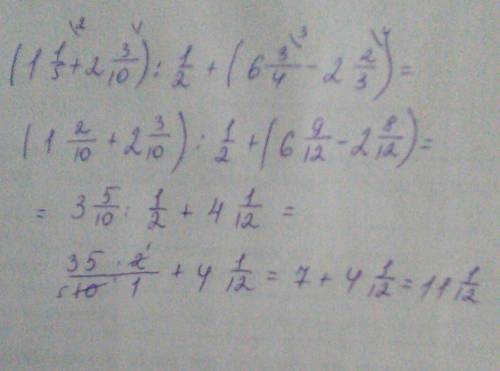 (1 1/5 \2 + 2 3/10 \1) : 1/2 + (6 3/4 \3 - 2 2/3 \4) =
(1 2/10 + 2 3/10) : 1/2 + (6 9/12 - 2 8/12) =
= 3 5/10 : 1/2 + 4 1/12 =
35 · 2 1 / 5 10 · 1 + 4 1/12 = 7 + 4 1/12 = 11 1/12